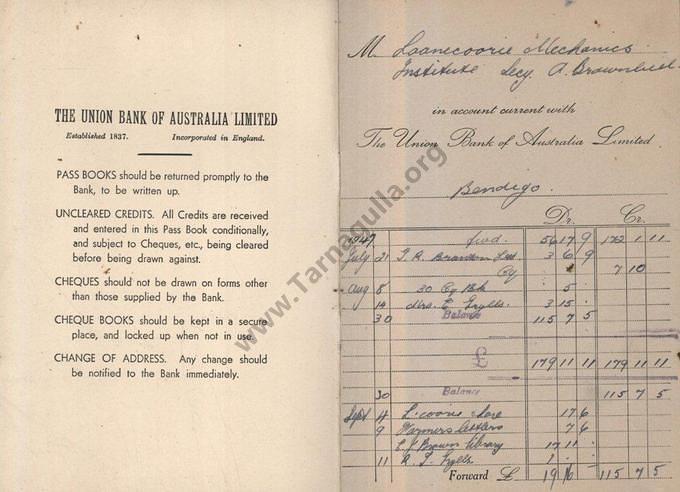 THE UNION BANK OF AUSTRALIA LIMITED
Established 1837. Incorporated in England.
PASS BOOKS should be returned promptly to the
Bank, to be written up.
UNCLEARED CREDITS. All Credits are received
and entered in this Pass Book conditionally,
and subject to Cheques, etc., being cleared
before being drawn against.
CHEQUES should not be drawn on forms other
than those supplied by the Bank.
CHEQUE BOOKS should be kept in a secure
place, and locked up when not in use.
CHANGE OF ADDRESS. Any change should
be notified to the Bank immediately.
www.Tarnagulla.org
M Loanecoorie Mechanics
Institute Secy. A. Brownbill
in account current with
The Union Bank of Australia Limited.
Bendigo.
Dr. Cr.
1947 fwd. 56 17 9 172 1 11
July 21 J. R. 3 6 9
7 10
Aug 8 30 Cq Bk . 5 .
14 Mrs. E. Grylls 3 15 .
30 Balance 115 7 5
£ 179 11 11 179 11 11
30 Balance 115 7 5
Sept 4 L'coorie Store 17 6
9 Farmers 7 6
E. J. Brown Library 17 11 .
11 R. J. Grylls 1 . .
Forward £ 19 16 115 7 5